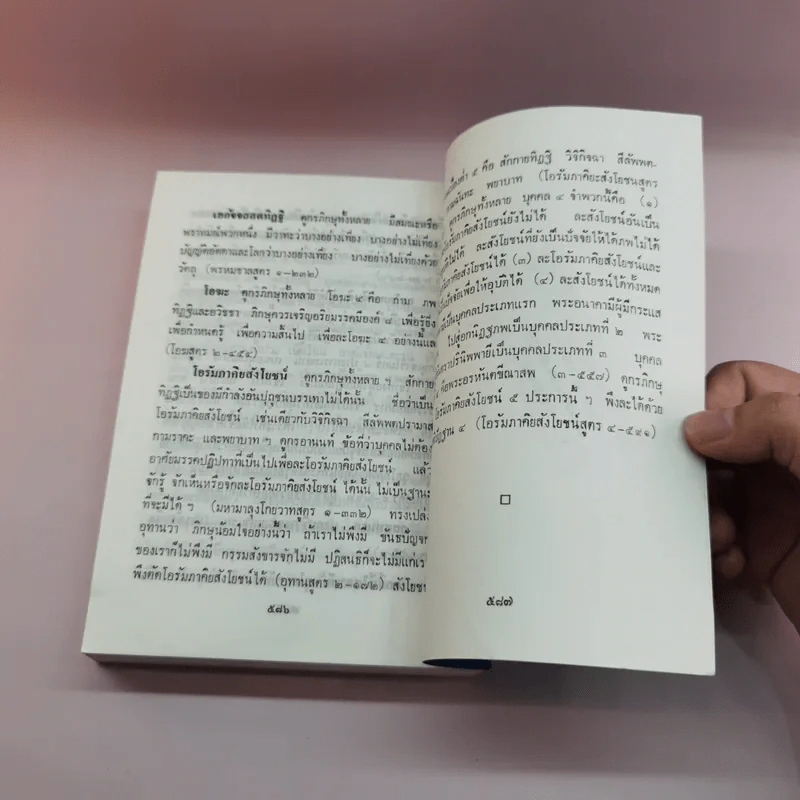 เอกัจจสัสสตทิฏฐิ ดูกรภิกษุทั้งหลาย มีสมณะหรือ
พราหมณ์พวกหนึ่ง มีวาทะว่าบางอย่างเที่ยง บางอย่างไม่เที่ยง
บัญญัติอัตตาและโลกว่าบางอย่างเที่ยง บางอย่างไม่เที่ยงด้วย
วัตถุ (พรหมชาลสูตร ๑-๒๓๒)
โอฆะ ดูกรภิกษุทั้งหลาย โอฆะ ๔ คือ กาม ภพ
ทิฏฐิและอวิชชา ภิกษุควรเจริญอริยมรรคมีองค์ ๘ เพื่อรู้ยิ่ง
เพื่อกำหนดรู้ เพื่อความสิ้นไป เพื่อละโอฆะ ๔ อย่างนี้แ
(โอฆสูตร ๒-๔๕๔)
โอรัมภาคิยสังโยชน์ ดูกรภิกษุทั้งหลาย ฯ สักกาย
ทิฏฐิเป็นของมีกำลังอันปุถุชนบรรเทาไม่ได้นั้น ชื่อว่าเป็น
โอรัมภาคิยสังโยชน์ เช่นเดียวกับวิจิกิจฉา สีลัพพตปรามาส
กามราคะ และพยาบาท ฯ ดูกรอานนท์ ข้อที่ว่าบุคคลไม่ต้อง
อาศัยมรรคปฏิปทาที่เป็นไปเพื่อละโอรัมภาคิยสังโยชน์ แล้ว
จักรู้ จักเห็นหรือจักละโอรัมภาคิยสังโยชน์ ได้นั้น ไม่เป็นฐานะ
ที่จะมีได้ ฯ (มหามาลุงโกยวาทสูตร ๑-๓๓๒) ทรงเปล่ง
อุทานว่า ภิกษุน้อมใจอย่างนี้ว่า ถ้าเราไม่พึงมี ขันธบัญจก
ของเราก็ไม่พึงมี กรรมสังขารจักไม่มี ปฏิสนธิก็จะไม่มีแก่เรา
พึงตัดโอรัมภาคิยสังโยชน์ได้ (อุทานสูตร ๒-๑๗๒) สังโยชน
๕๘๖
เบื้องต่ำ ๕ คือ สักกายทิฏฐิ วิจิกิจฉา สีลัพพต-
กามฉันทะ พยาบาท (โอรัมภาคิยะสังโยชนสูตร
ดูกรภิกษุทั้งหลาย บุคคล ๔ จำพวกนี้คือ (๑)
โอรัมภาคิยสังโยชน์ยังไม่ได้ ละสังโยชน์อันเป็น
ติไม่ได้ ละสังโยชน์ที่ยังเป็นปัจจัยให้ได้ภพไม่ได้
าคิยสังโยชน์ได้ (๓) ละโอรัมภาคิยสังโยชน์และ
ปัจจัยเพื่อให้อุบัติได้ (๔) ละสังโยชน์ได้ทั้งหมด
มีเป็นบุคคลประเภทแรก พระอนาคามีผู้มีกระแส
ไปสู่อกนิฏฐภพเป็นบุคคลประเภทที่ ๒ พระ
ตราปรินิพพายีเป็นบุคคลประเภทที่ ๓ บุคคล
๔ คือพระอรหันตขีณาสพ (๓-๕๕๗) ดูกรภิกษุ
โอรัมภาคิยสังโยชน์ ๕ ประการนี้ ฯ พึงละได้ด้วย
สติปัฏฐาน ๔ (โอรัมภาคิยสังโยชน์สูตร ๔-๕๙๑)
๕๘๗